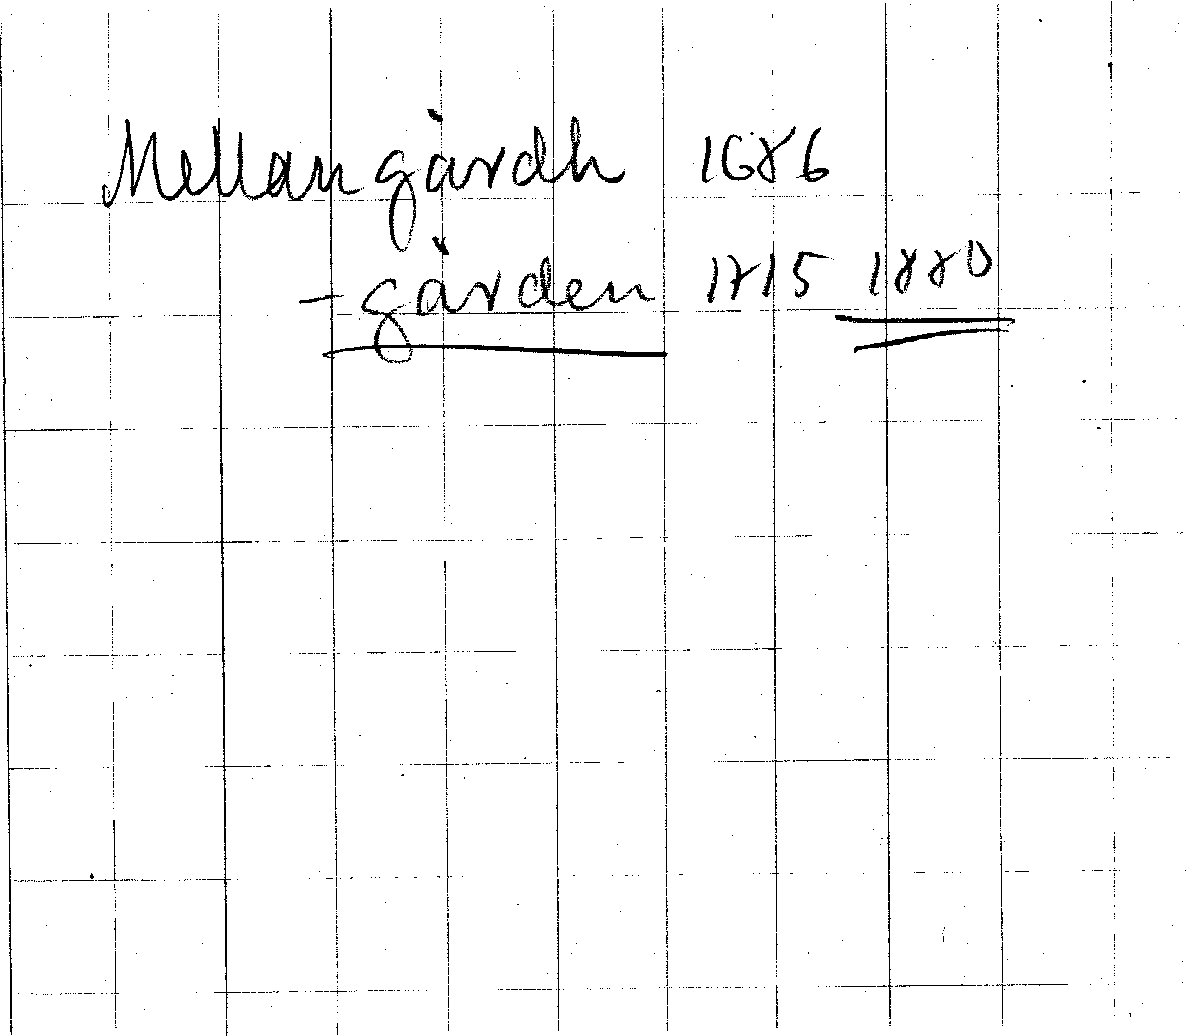 Mellangårdh 1686
-gården 1715 1880